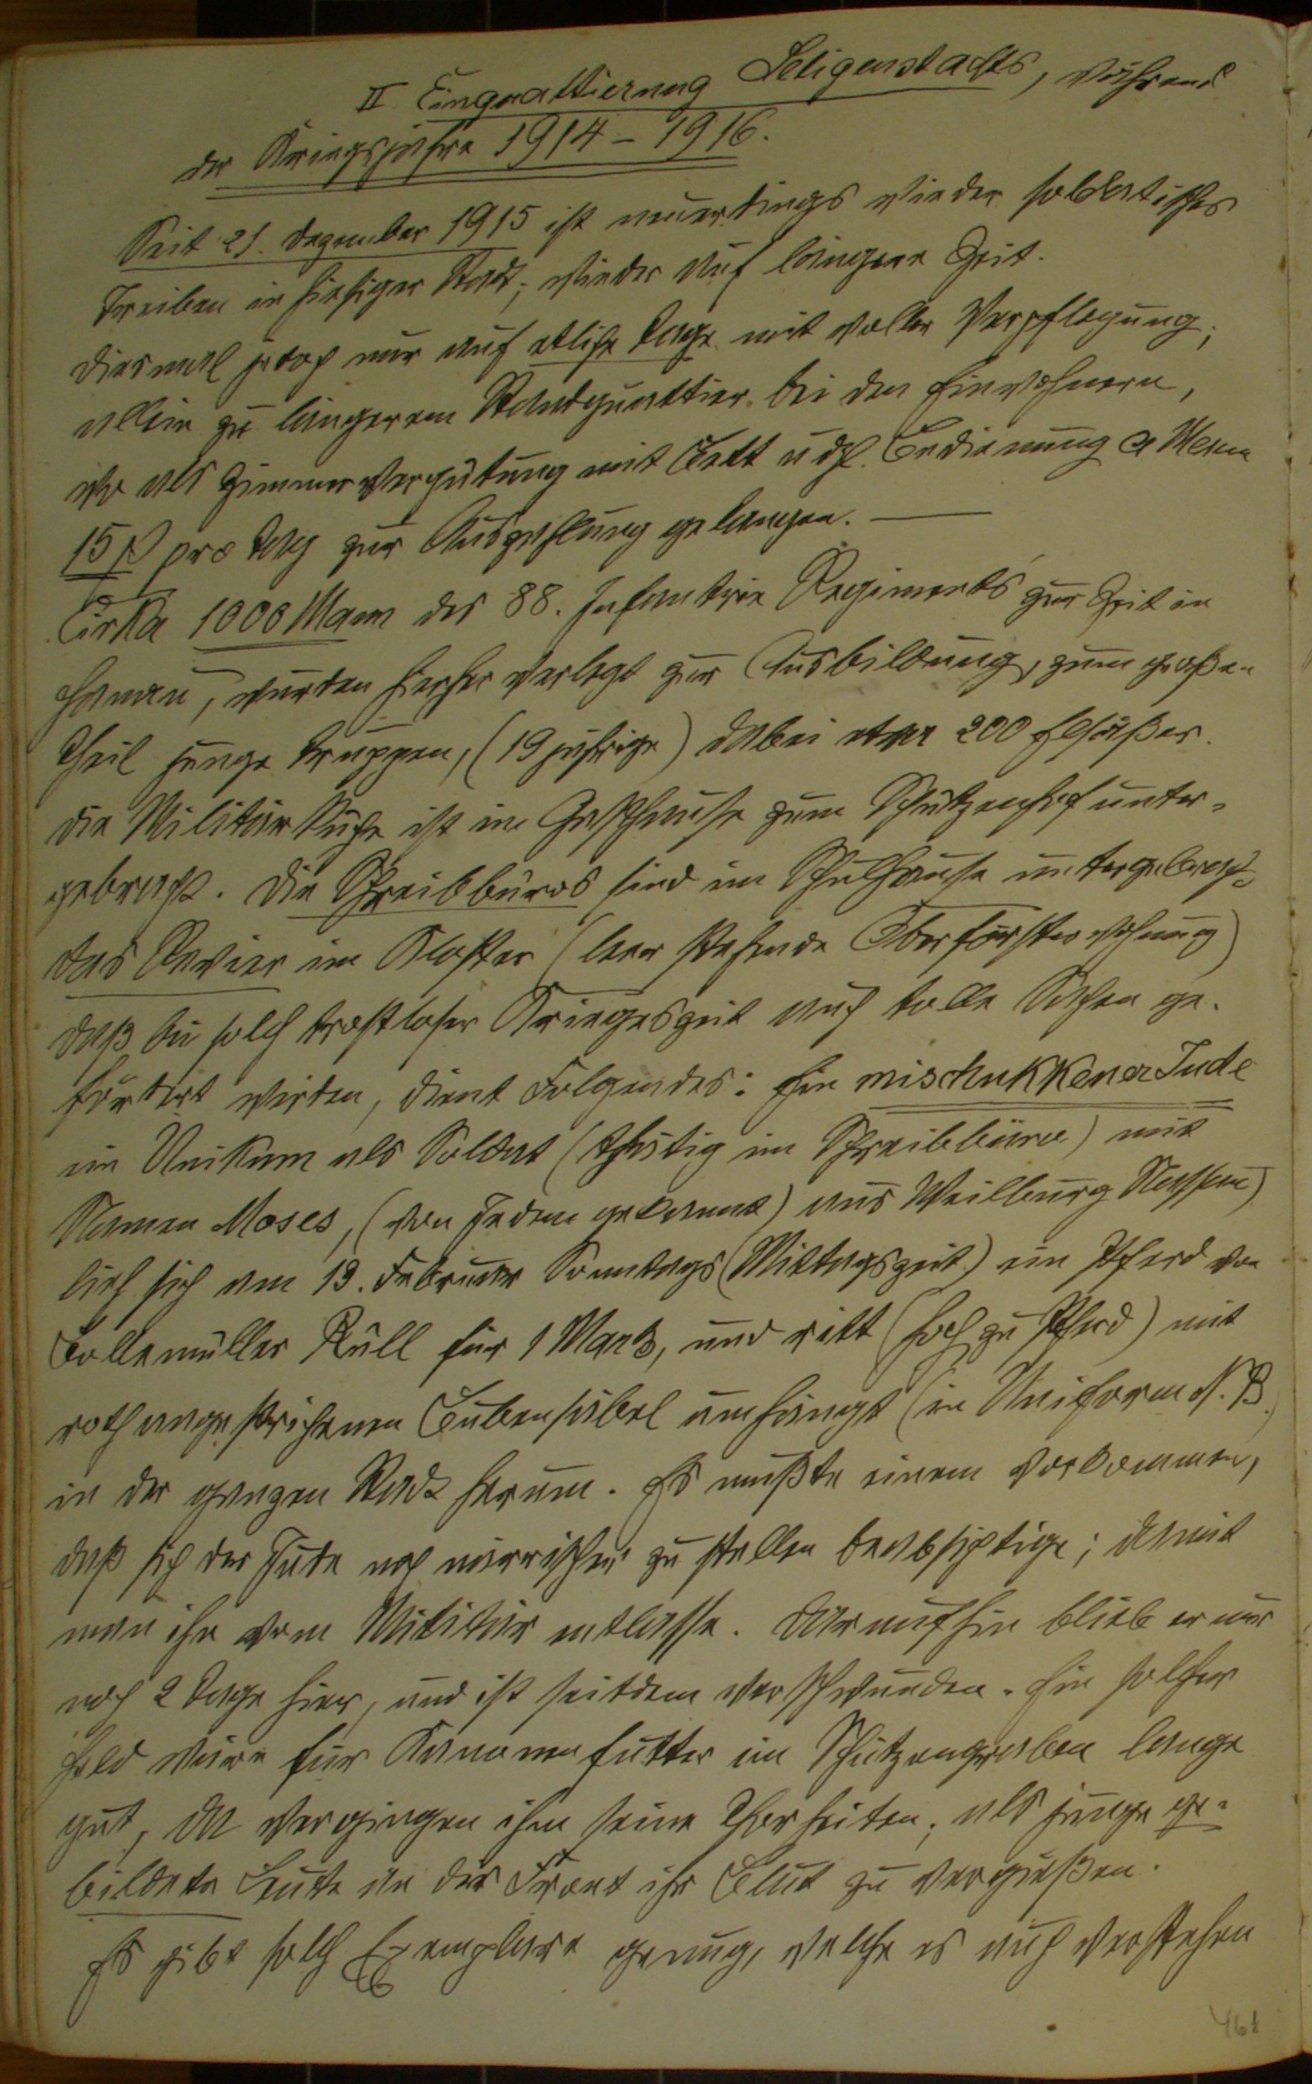 II. Einquattierung Seligenstadts, während
der Kriegsjahre 1914–1916.
Seit 21. Dezember 1915 ist neuerdings wieder soldatisches
Treiben in hiesiger Stadt; wieder auf längere Zeit.
Diesmal jedoch nur auf etliche Tage mit voller Verpflegung;
allein zu längerem Standquattier bei den Einwohnern,
wo als Zimmervergütung mit Bett udgl. Bedienung a Mann
15 pro Tag zur Auszahlung gelangen. —
Cirka 1000 Mann des 88. Infantrie Regiments zur Zeit in
Hanau, wurden hierher verlegt zur Ausbildung, zum großen
Theil junge Truppen, (19 jährige) dabei etwa 200 Elsäßer.
Die Militärküche ist im Gasthause zum Schützenhof unter-
gebracht. Die Schreibbüros sind im Schulhause untergebracht
Das Revier im Kloster (leer stehende Oberförsterwohnung)
Daß bei solch trostloser Kriegszeit auch tolle Sachen ge-
fördert werden, dient Folgendes: Ein mischukkener Jude
ein Unikum als Soldat (thätig im Schreibbüro) mit
Namen Moses, (von Jedem gekannt) aus Weilburg Nassau)
lieh sich am 13. Februar Sonntags (Mittagszeit) ein Pferd von
müller Rüll für 1 Mark, und ritt (hoch zu Pferd) mit
roth angestrichenen Bubensäbel umhängt (in Uniform N.B.)
in der ganzen Stadt herum. Es mußte einem vorkommen,
daß sich der Jude noch närrischer zu stellen beabsichtige; damit
man ihn vom Militär entlasse. Daraufhin blieb er nur
noch 2 Tage hier, und ist seitdem verschwunden. Ein solcher
Held wäre für Kanonenfutter im Schützengraben lange
gut, da vergingen ihm seine Thorheiten; als junge ge-
bildete Leute an der Front ihr Blut zu vergießen.
Es gibt solch Exemplare genug, welche es auch verstehen
461